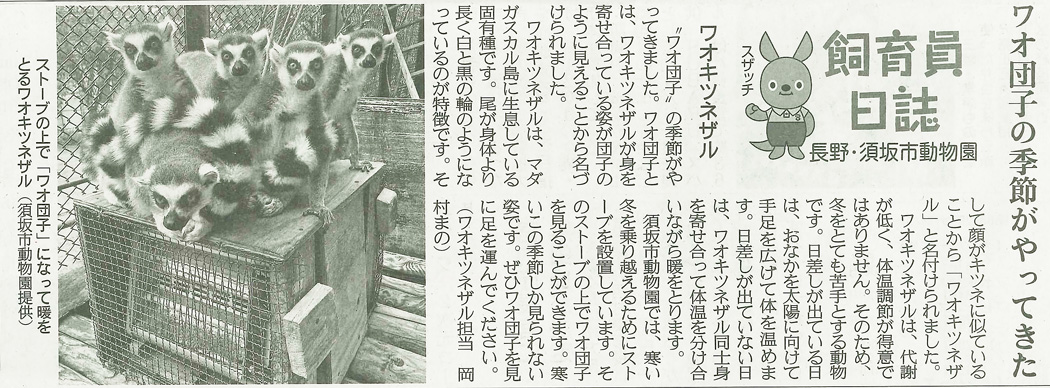 ワオ団子の季節がやってきた
飼育員
日誌
長野・須坂市動物園
スザッチ
ワオキツネザル
〝ワオ団子〟の季節がや
ってきました。ワオ団子と
は、ワオキツネザルが身を
寄せ合っている姿が団子の
ように見えることから名づ
けられました。
ワオキツネザルは、マダ
ガスカル島に生息している
固有種です。尾が身体より
長く白と黒の輪のようにな
っているのが特徴です。そ
して顔がキツネに似ている
ことから「ワオキツネザ
ル」と名付けられました。
ワオキツネザルは、代謝
が低く、体温調節が得意で
はありません。そのため、
冬をとても苦手とする動物
です。日差しが出ている日
は、おなかを太陽に向けて
手足を広げて体を温めま
す。日差しが出ていない日
は、ワオキツネザル同士身
を寄せ合って体温を分け合
いながら暖をとります。
須坂市動物園では、寒い
冬を乗り越えるためにスト
ーブを設置しています。そ
のストーブの上でワオ団子
を見ることができます。寒
いこの季節しか見られない
姿です。ぜひワオ団子を見
に足を運んでください。
(ワオキツネザル担当 岡
村まの)
ストーブの上で「ワオ団子」になって暖を
とるワオキツネザル(須坂市動物園提供)